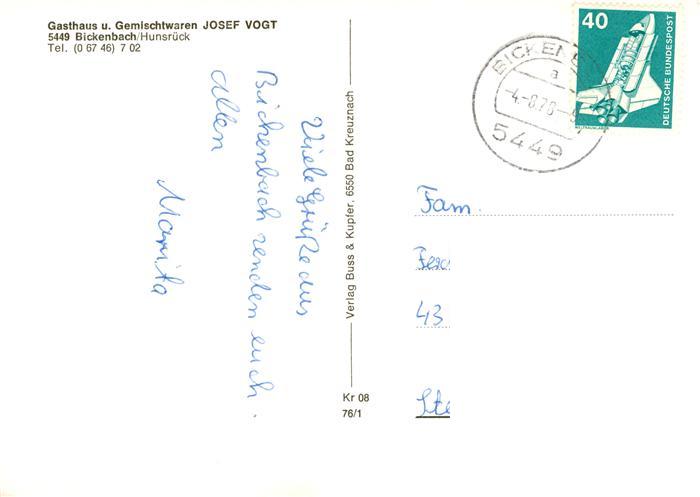 Gasthaus u. Gemischtwaren JOSEF VOGT
5449 Bickenbach/Hunsrück
Tel. (0 67 46) 7 02
Viele Grüße aus
Bickenbach senden euch
allen
Marita
Verlag Buss & Kupfer, 6550 Bad Kreuznach
Kr 08
76/1
BICKENB
a
-4.-8.78-
5449
40
DEUTSCHE BUNDESPOST
Fam.
43